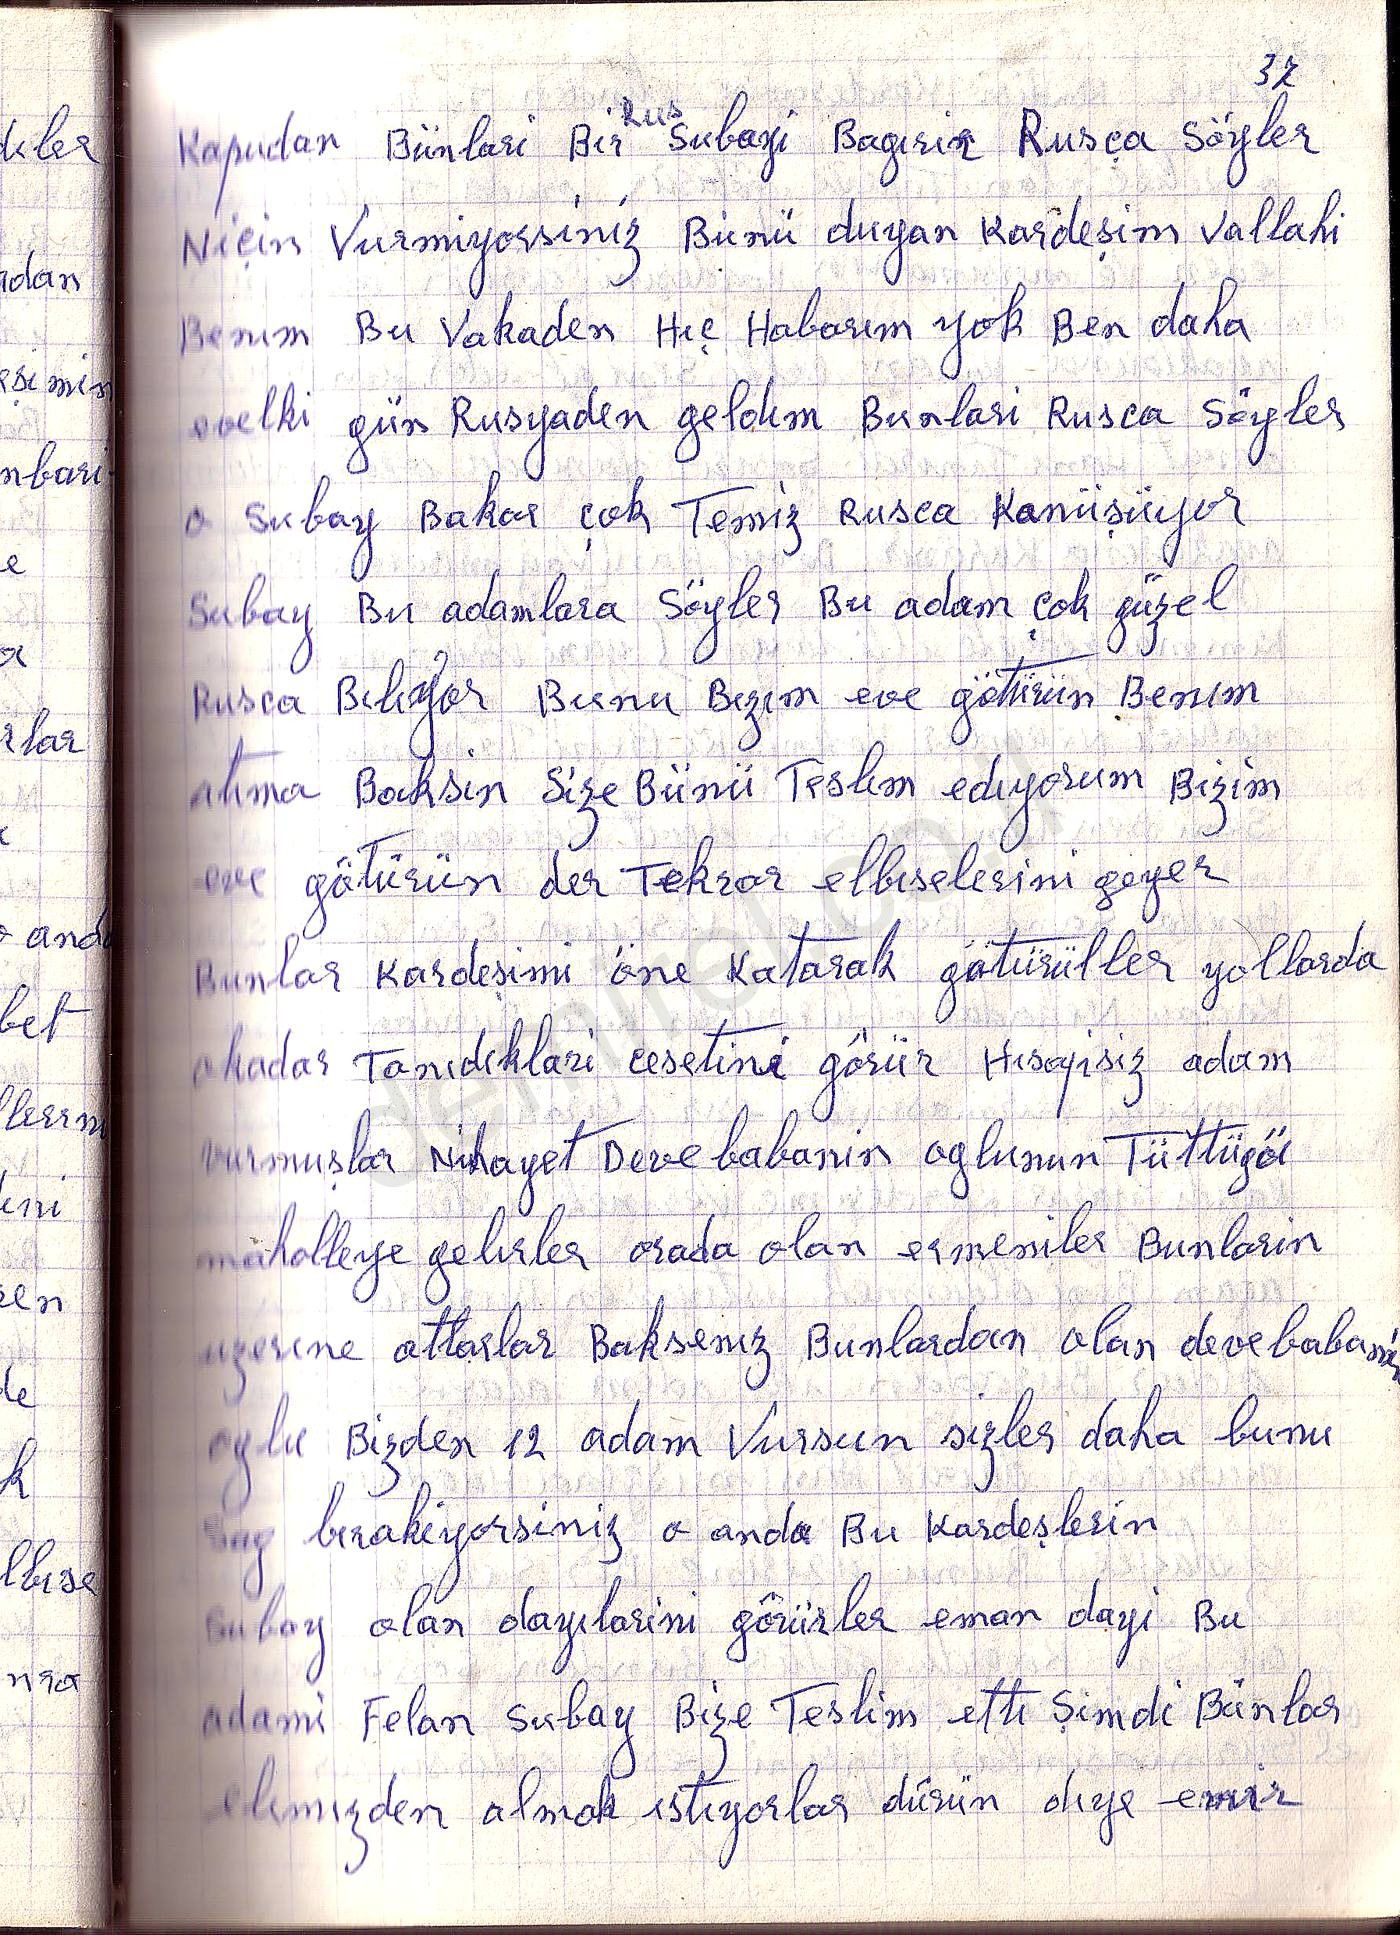 37
Kapudan Bünlari Bir Rus Subayi Bagirir Rusça Söyler
Niçin Vurmiyorsiniz Bünü duyan Kardeşim Vallahi
Benım Bu Vakaden Hıç Habarım yok Ben daha
evelki gün Rusyaden geldım Bunlari Rusca Söyler
o Subay Bakar çok Temiz Rusca Konüşüyor
Subay Bu adamlara Söyler Bu adam çok güzel
Rusca Bılıyor Bunu Bızım eve götürün Benım
atıma Baksin Size Bünü Teslım edıyorum Bizim
eve götürün der Tekrar elbıselerini geyer
Bunlar Kardeşimi öne Katarak götürüller yollarda
okadar Tanıdıklari cesetini görür Hısapisiz adam
vurmuşlar Nihayet Devebabanin oglunun Tüttügöi
mahalleye gelırler orada olan ermeniler Bunlarin
uzerıne atlarlar Baksenız Bunlardan olan devebabanin
oglu Bizden 12 adam Vursun sizler daha bunu
sag bırakiyorsiniz o anda Bu Kardeşlerin
Subay olan dayılarini görürler eman dayi Bu
adami Felan Subay Bize Teslim ettı Şimdi Bünlar
elımızden almak ıstıyorlar dürün dıye emir
dkler
adan
eşimin
nbari
e
a
rlar
o anda
bet
llerım
ini
ren
de
k
lbıse
nra
demirel.co.il